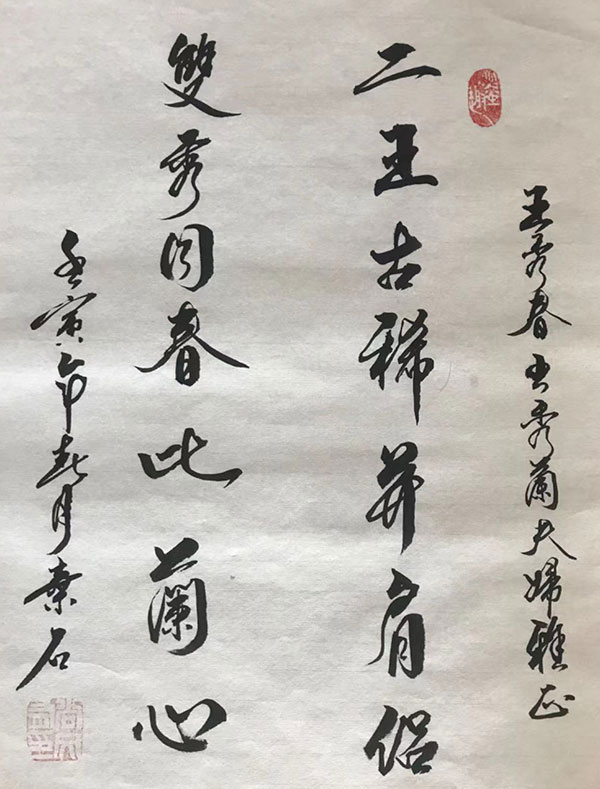 王秀春王秀蘭夫婦雅正
二王古稀并肩侶
雙秀同春此蘭心
壬寅年春月石